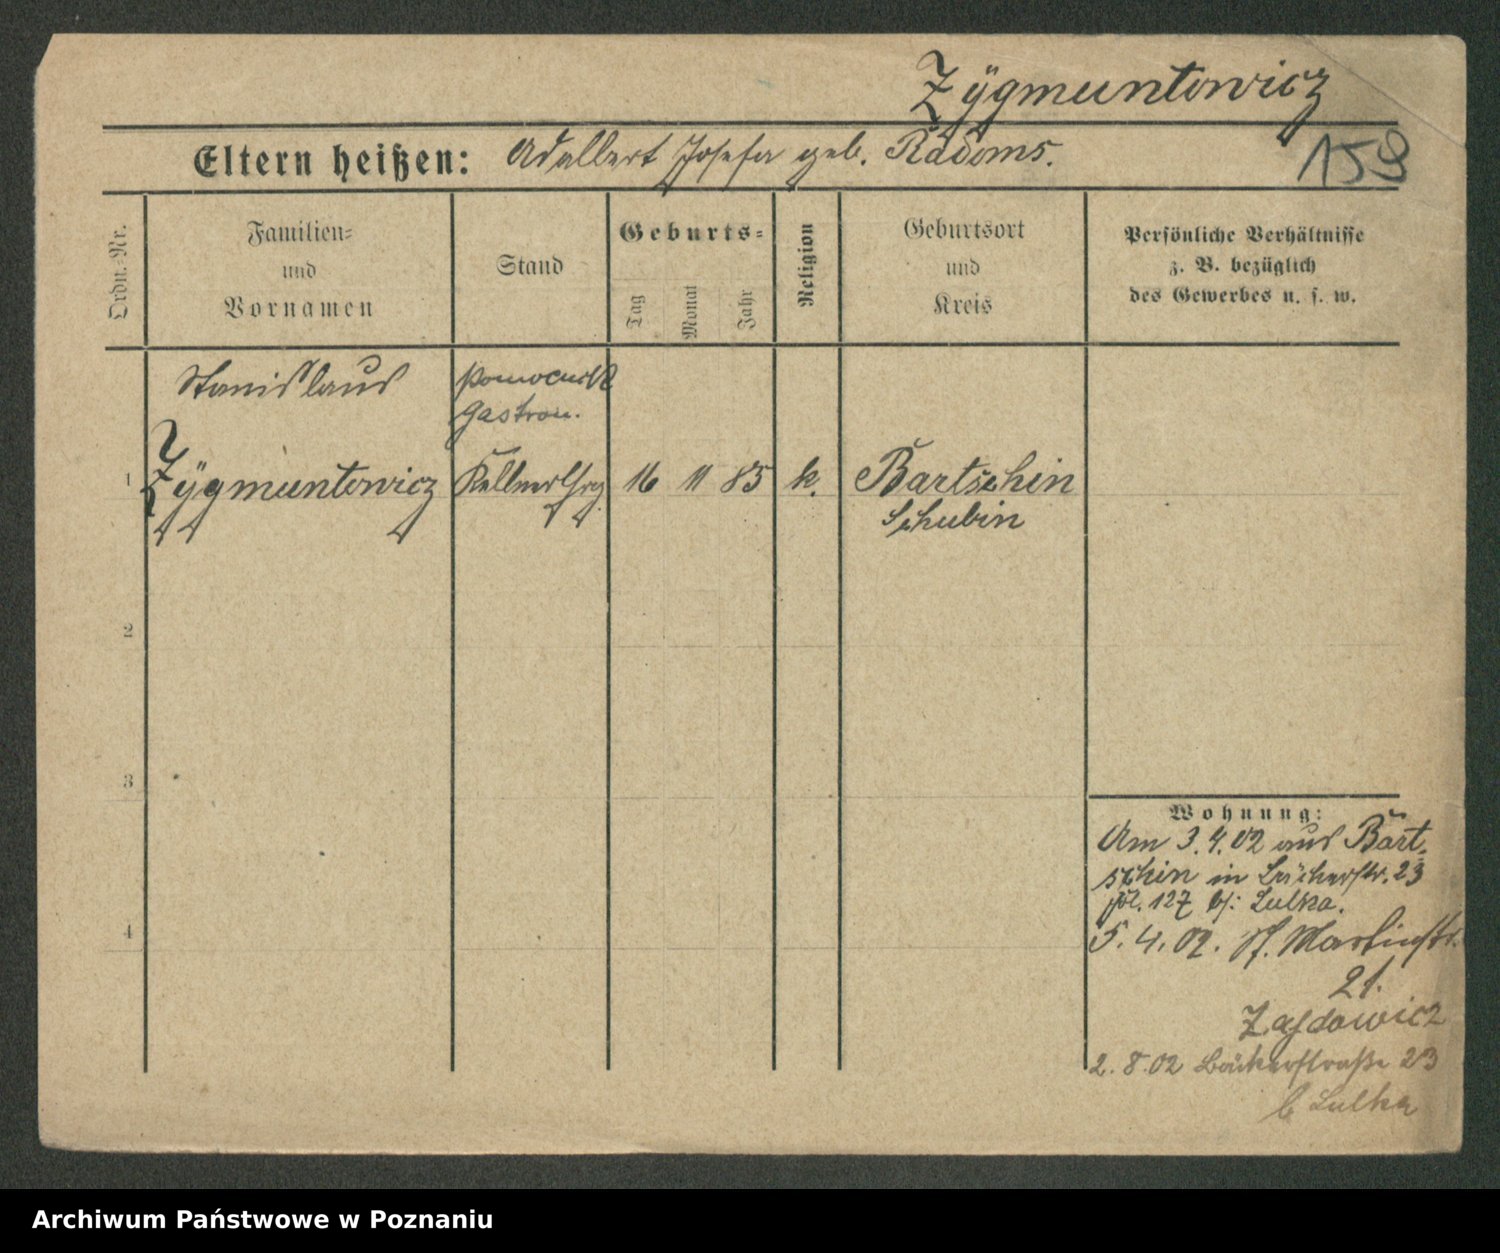 Zÿgmuntowicz
Eltern heißen: Adalbert Josefa geb. Radoms.
159
Ordn.-Nr.
Familien-
und
Vornamen
Stand
Geburts-
Tag
Monat
Jahr
Religion
Geburtsort
und
Kreis
Persönliche Verhältnisse
z. B. bezüglich
des Gewerbes u. s. w.
Stanislaus
pomocnik
gastron.
1 Zÿgmuntowicz Kellnerlhrg 16 11 85 k. Bartschin
Schubin
2
3
4
Wohnung:
Am 3.4.02 aus Bart-
schin in Bäckerstr. 23
127 b/: Lulka.
5. 4. 02. St. Martinstr.
21.
Zajdowicz
2. 8. 02 Bäckerstraße 23
b Lulka
Archiwum Państwowe w Poznaniu